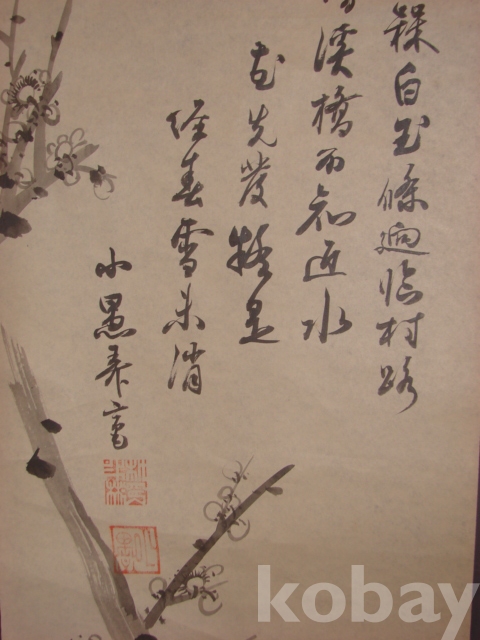 槑白玉條迥臨村路
溪橋不知近水
花先發疑是
經春雪未消
小愚
kobay